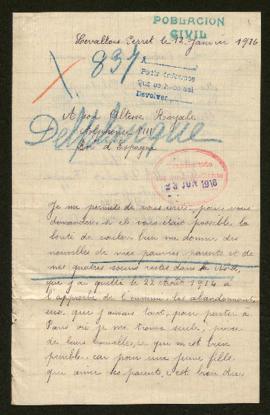 POBLACION
CIVIL
Levallois Perret le 12 Janvier 1916
831
A Son Altesse Royale
Alphonse XIII
Roi d'Espagne
Je me permets de vous écrire pour vous
demander s'il vous était possible la
bonté de vouloir bien me donner des
nouvelles de mes pauvres parents et de
mes quatres soeurs restés dans le Nord
que j'ai quitté le 22 Août 1914 à
l'approche de l'ennemi les abandonnant
eux que j'aimais tant, pour partir à
Paris où je me trouve seule, privée
de leurs nouvelles, ce qui m'est bien
pénible car pour une jeune fille
qui aime ses parents, c'est bien dur